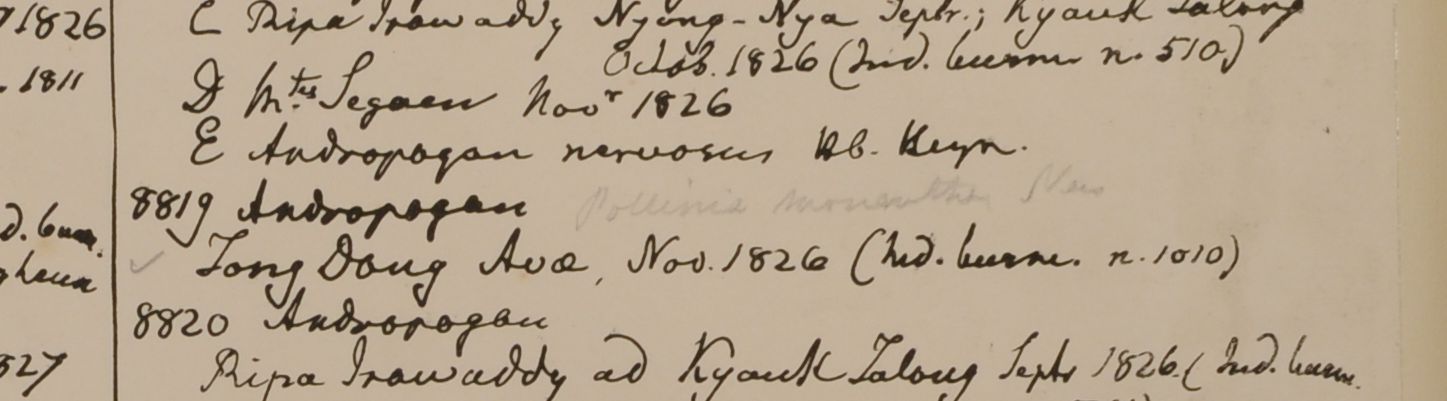 1826
C Ripa Irawaddy Nyong-Nya Septr.; Kyauk Talong
Octob. 1826 (Ind. burm. n. 510)
. 1811
D M.tes Segaen Novr 1826
E Andropogan nervosus Hb. Heyn.
8819 Andropogan Pollinia monantha Nees
d. burm.
Tong Doug Avæ, Nov. 1826 (Ind. burm. n. 1010)
8820 Andropogan
527
Ripa Irawaddy ad Kyauk Talong Septr 1826. (Ind. burm.